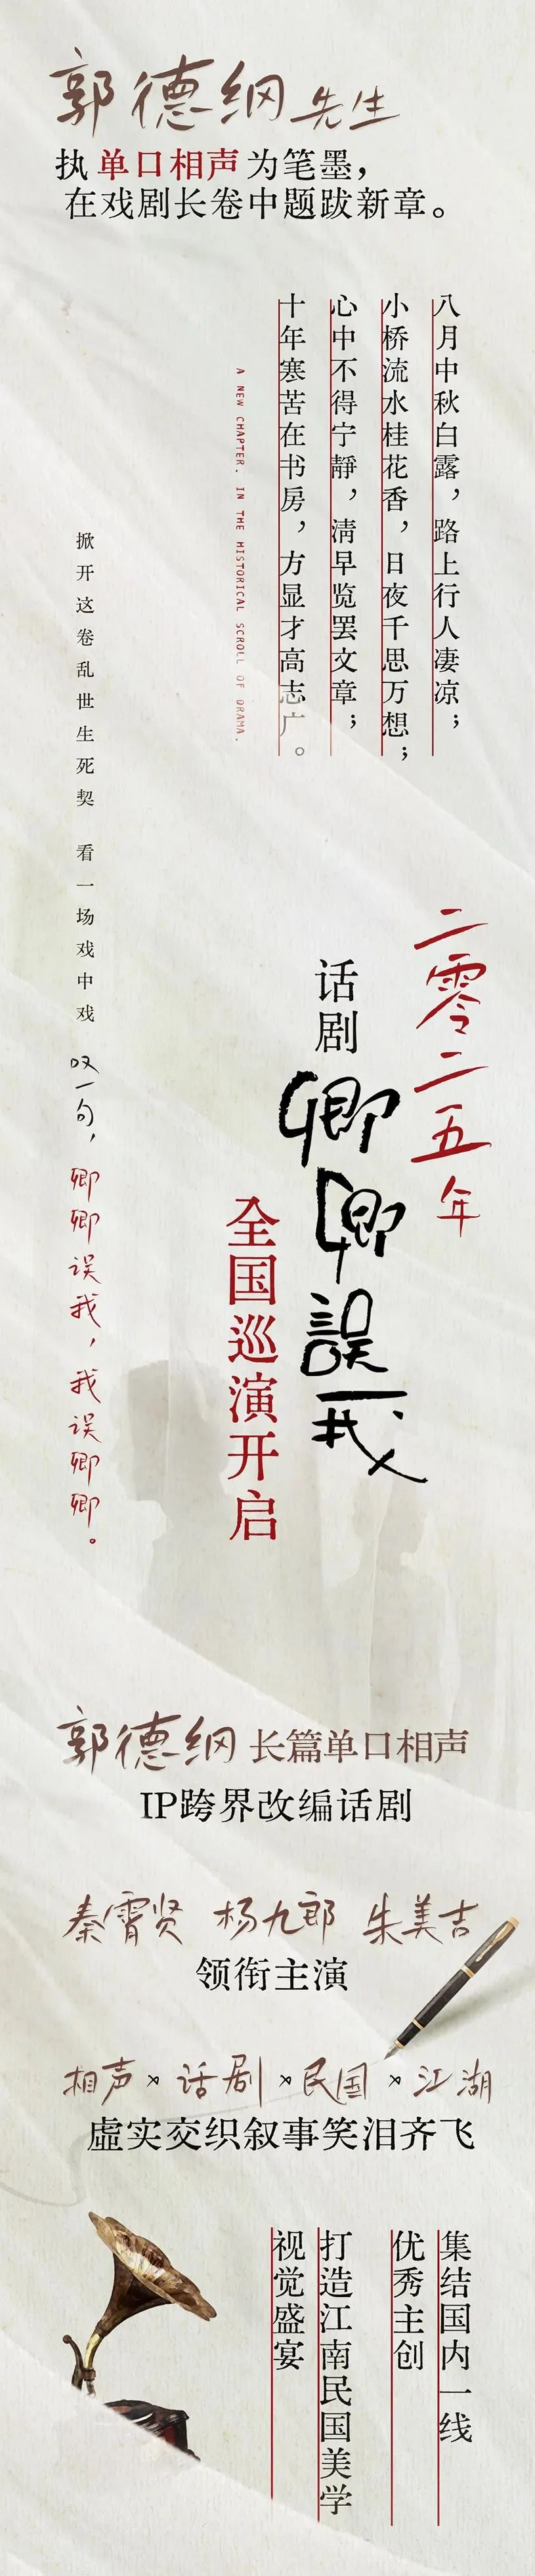 郭德纲先生
执单口相声为笔墨，
在戏剧长卷中题跋新章。
八月中秋白露，路上行人凄凉；
小桥流水桂花香，日夜千思万想；
心中不得宁静，清早览罢文章；
十年寒苦在书房，方显才高志广。
A NEW CHAPTER. IN THE HISTORICAL SCROLL OF DRAMA.
掀开这卷乱世生死契 看一场戏中戏
叹一句，卿卿误我，我误卿卿。
二零二五年
话剧
卿卿誤我
全国巡演开启
郭德纲长篇单口相声
IP跨界改编话剧
秦霄贤 杨九郎 朱美吉
领衔主演
相声×话剧×民国×江湖
虚实交织叙事笑泪齐飞
集结国内一线
优秀主创
打造江南民国美学
视觉盛宴